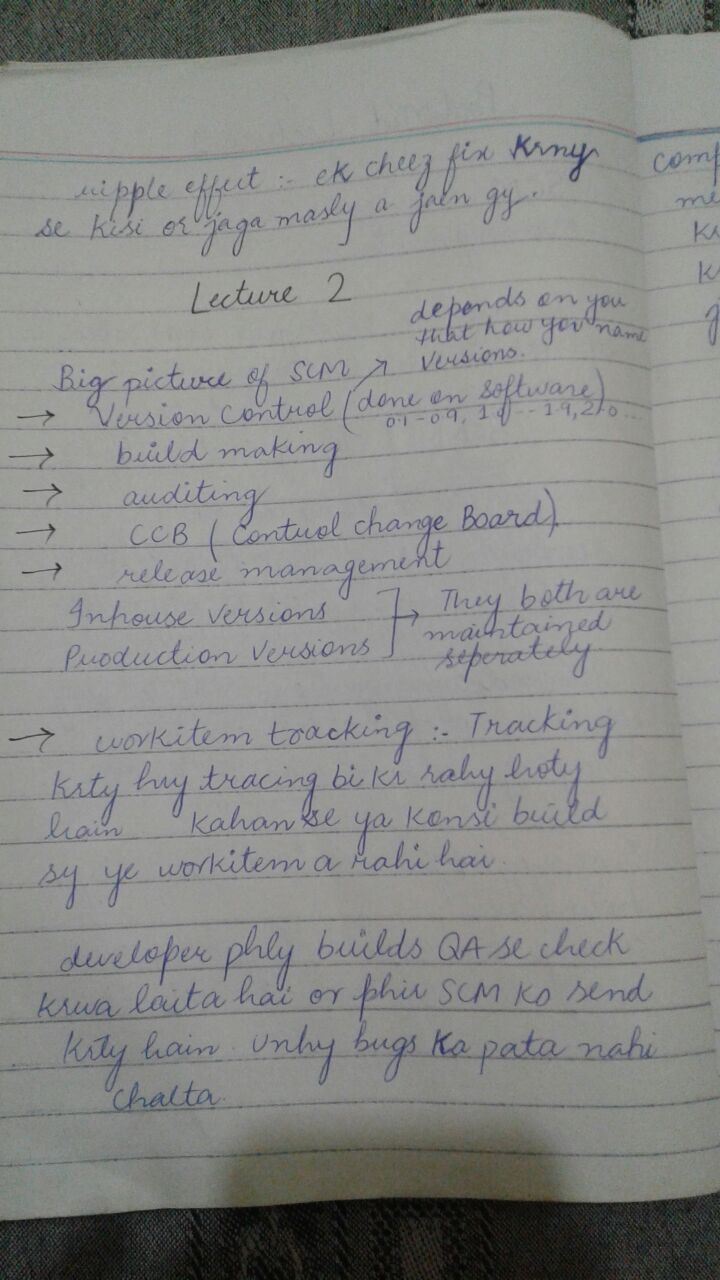 ripple effect :- ek cheez fix krny
se kisi or jaga masly a jain gy.
Lecture 2
depends on you
that how you name
versions.
Big picture of SCM
→ Version Control (done on software)
0.1-0.9, 1.0 -- 1.9, 2.0...
→ build making
→ auditing
→ CCB (Control change Board)
→ release management
Inhouse versions
Production versions
→ They both are
maintained
seperately.
→ workitem tracking :- Tracking
krty huy tracing bi kr rahy hoty
hain kahan se ya konsi build
sy ye workitem a rahi hai.
developer phly builds QA se check
krwa laita hai or phir SCM ko send
krty hain. Unhy bugs ka pata nahi
chalta.
comp
me
kr
k
g